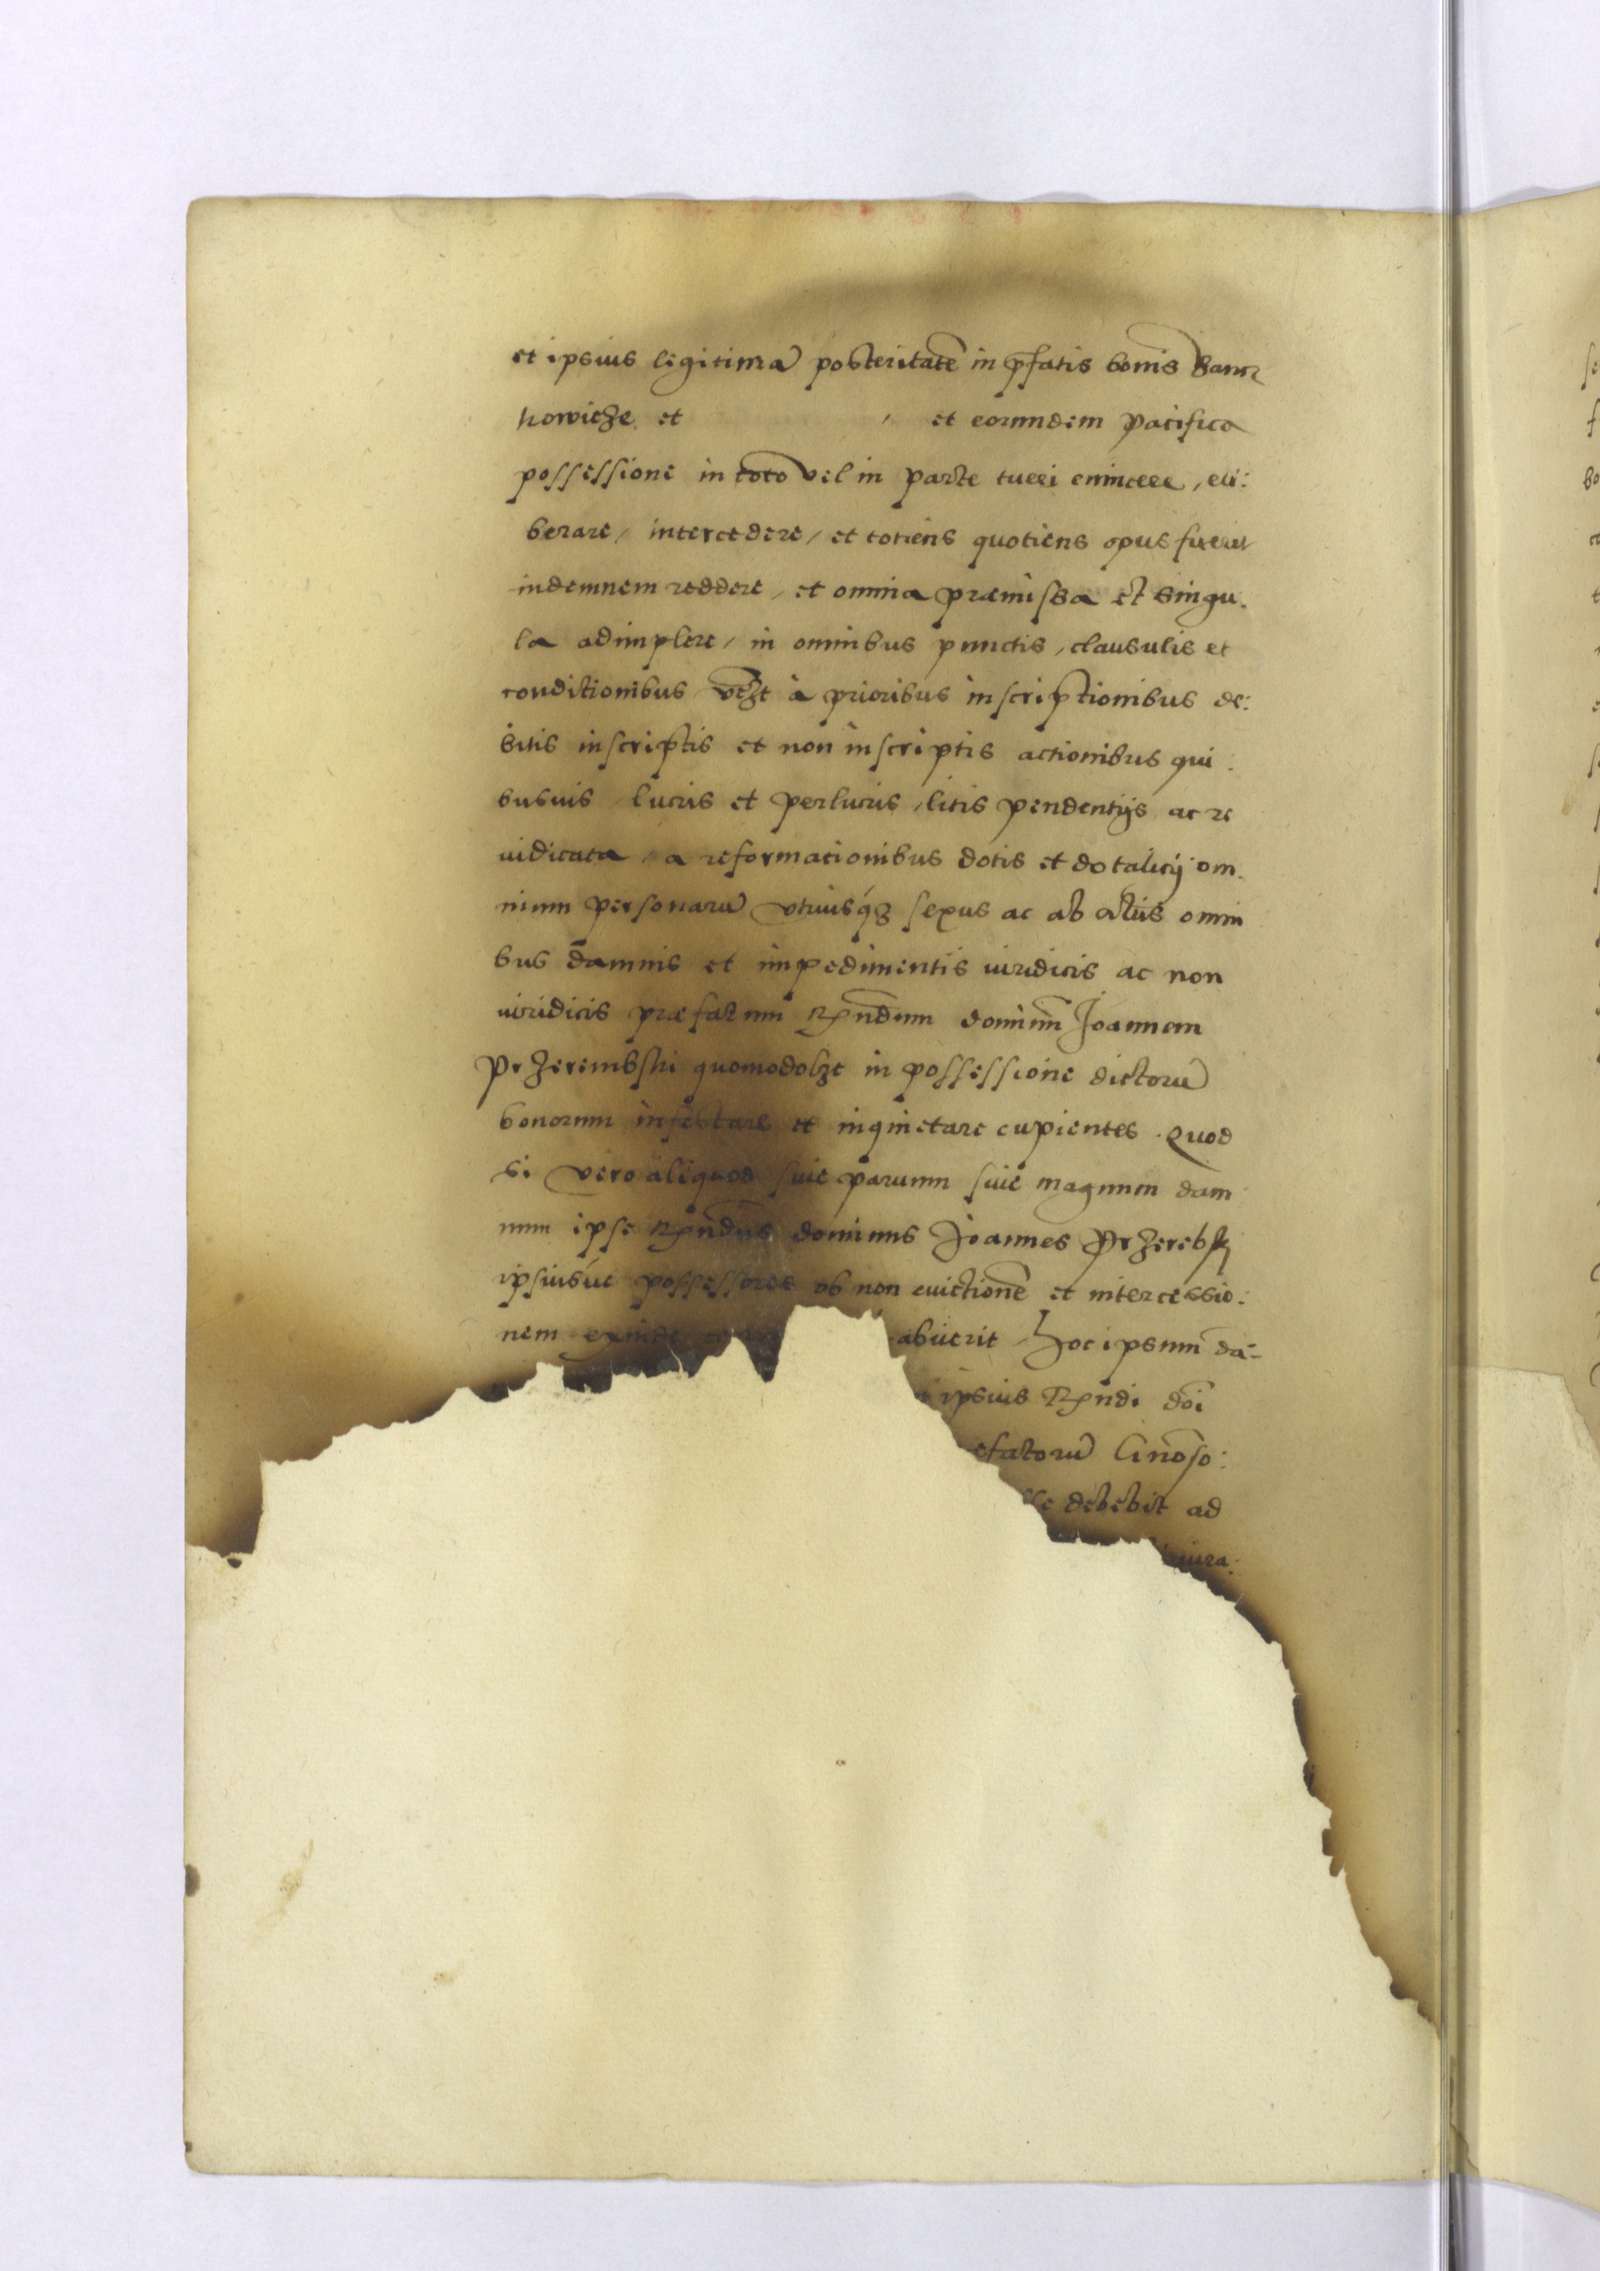 et ipsius legitimā posteritatē in p̄fatis bonis Banc
kowicze et / et eorundem pacifica
possessione in toto vel in parte tueri evincere, eli:
berare / intercedere / et totiens quotiens opus fuerit
indemnem reddere / et omnia præmissa et singu.
la adimplere / in omnibus punctis, clausulis et
conditionibus vꝫt à prioribus inscriptionibus de:
bitis inscriptis et non inscriptis actionibus qui.
busuis lucris et perlucris, litis pendentijs ac re
iudicata / a reformationibus dotis et dotalicij om.
nium personarū vtriusqꝫ sexus ac ab alijs omni
bus damnis et impedimentis iuridicis ac non
iuridicis præfatum Rn̄dum dominū Joannem
Przerembski quomodolꝫt in possessione dictorū
bonorum infestare et inquietare cupientes. Quod
si vero aliquod siue paruum siue magnum dam
num ipse Rn̄dus dominus Joannes Przerebsk
ipsiusúe possessores ob non euictionē et intercessio:
nem exinde abuerit hoc ipsum da-
ipsius Rndi doī
efatorū Gn̄oso:
debebit ad
iura: